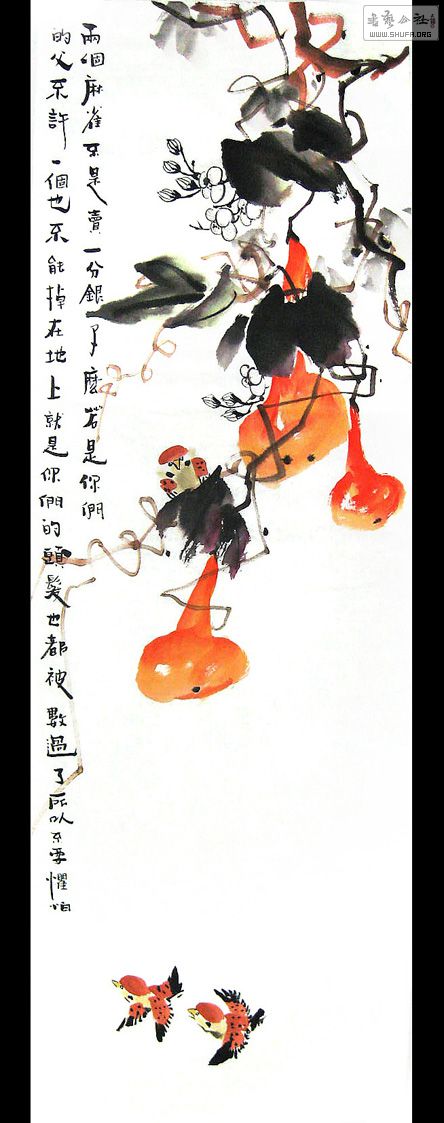 兩個麻雀不是賣一分銀子麼若是你們
的父不許一個也不能掉在地上就是你們的頭髮也都被數過了所以不要懼怕
書藝公社
WWW.SHUFA.ORG